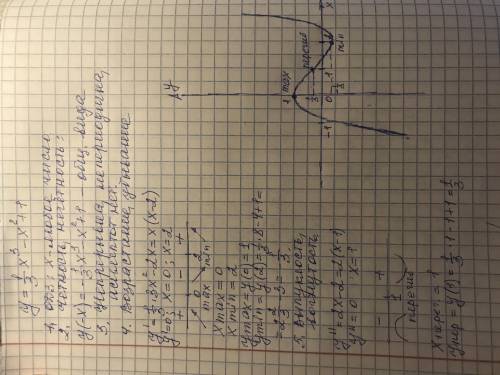 y = 1/3 x³ - x² + 1
1. ОХЗ: x - любое число
2. Четность, нечётность:
y(-x) = -1/3 x³ - x² + 1 - общ. вида
3. Непрерывна, непериодична,
асимптот нет.
4. Возрастание, убывание
y' = 1/3 · 3x² - 2x = x(x-2)
y' = 0; x = 0; x = 2
+ - +
0 2
max min
x max = 0
x min = 2
y max = y(0) = 1
y min = y(2) = 1/3 · 8 - 4 + 1 =
= 2 2/3 - 3 = -1/3
5. Выпуклость,
вогнутость
y'' = 2x - 2 = 2(x-1)
y'' = 0 x = 1
- +
1
перегиб
x перег. = 1
y пер = y(1) = 1/3 · 1 - 1 + 1 = 1/3
y
1 max
перегиб
1/3
-1 0 1 2
-1/3
min
x